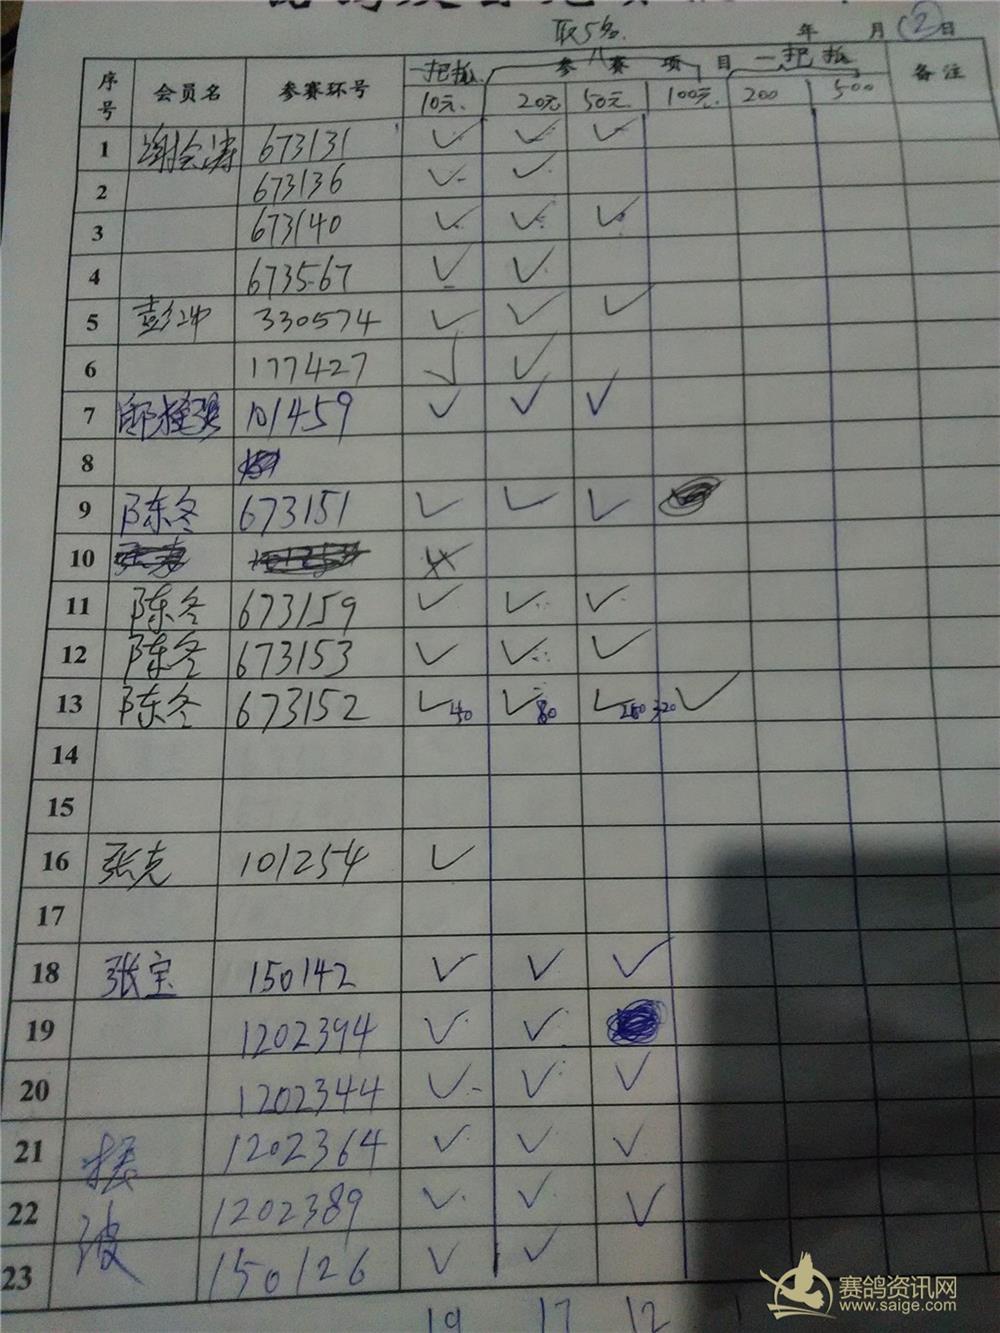 取5名. 年 月 (2)日
序号 会员名 参赛环号 一把抓 参赛项目 一把抓 备注
10元. 20元 50元. 100元. 200 500
1 谢会涛 673131 ✓ ✓ ✓
2 673136 ✓ ✓
3 673140 ✓ ✓ ✓
4 673567 ✓ ✓
5 彭冲 330574 ✓ ✓ ✓
6 177427 ✓ ✓
7 101459 ✓ ✓ ✓
8
9 陈冬 673151 ✓ ✓ ✓
10
11 陈冬 673159 ✓ ✓ ✓
12 陈冬 673153 ✓ ✓ ✓
13 陈冬 673152 ✓40 ✓80 ✓ 320 ✓
14
15
16 张克 101254 ✓
17
18 张宝 150142 ✓ ✓ ✓
19 1202394 ✓ ✓
20 1202344 ✓ ✓ ✓
21 振 1202364 ✓ ✓ ✓
22 波 1202389 ✓ ✓ ✓
23 150126 ✓ ✓
19 17 12
赛鸽资讯网
www.saige.com